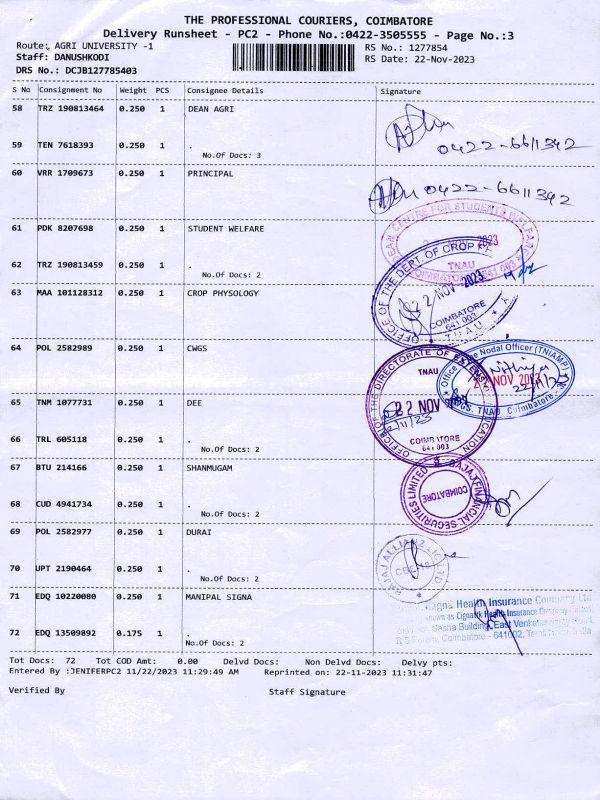 THE PROFESSIONAL COURIERS, COIMBATORE
Delivery Runsheet - PC2 - Phone No.:0422-3505555 - Page No.:3
Route: AGRI UNIVERSITY -1
RS No.: 1277854
Staff: DANUSHKODI
RS Date: 22-Nov-2023
DRS No.: DCJB127785403
S No Consignment No Weight PCS Consignee Details Signature
58 TRZ 190813464 0.250 1 DEAN AGRI
59 TEN 7618393 0.250 1 .
0422-6611342
No.Of Docs: 3
60 VRR 1709673 0.250 1 PRINCIPAL
0422-6611342
61 PDK 8207698 0.250 1 STUDENT WELFARE
DEAN CENTRE FOR STUDENTS WELFARE
2023
TNAU
COIMBATORE 641 003
62 TRZ 190813459 0.250 1 .
No.Of Docs: 2
63 MAA 101128312 0.250 1 CROP PHYSOLOGY
OFFICE OF THE DEPT. OF CROP
22 NOV 2023
COIMBATORE
641 003
TNAU
64 POL 2582989 0.250 1 CWGS
Office of the Nodal Officer (TNIAMP)
Nithiya
NOV 2023
TNAU, Coimbatore
65 TNM 1077731 0.250 1 DEE
OFFICE OF THE DIRECTORATE OF EXTENSION EDUCATION
TNAU
22 NOV
COIMBATORE
641 003
66 TRL 605118 0.250 1 .
No.Of Docs: 2
67 BTU 214166 0.250 1 SHANMUGAM
BAJAJ FINANCIAL SECURITIES LIMITED
COIMBATORE
68 CUD 4941734 0.250 1 .
No.Of Docs: 2
69 POL 2582977 0.250 1 DURAI
BAJAJ ALLIANZ
70 UPT 2190464 0.250 1 .
No.Of Docs: 2
71 EDQ 10220080 0.250 1 MANIPAL SIGNA
Health Insurance Company Ltd
known as Cigna Health Insurance Company Limited
Sesha Building, East Venketasamy Road
Coimbatore - 641002,
72 EDQ 13509892 0.175 1 .
No.Of Docs: 2
Tot Docs: 72 Tot COD Amt: 0.00 Delvd Docs: Non Delvd Docs: Delvy pts:
Entered By :JENIFERPC2 11/22/2023 11:29:49 AM Reprinted on: 22-11-2023 11:31:47
Verified By Staff Signature